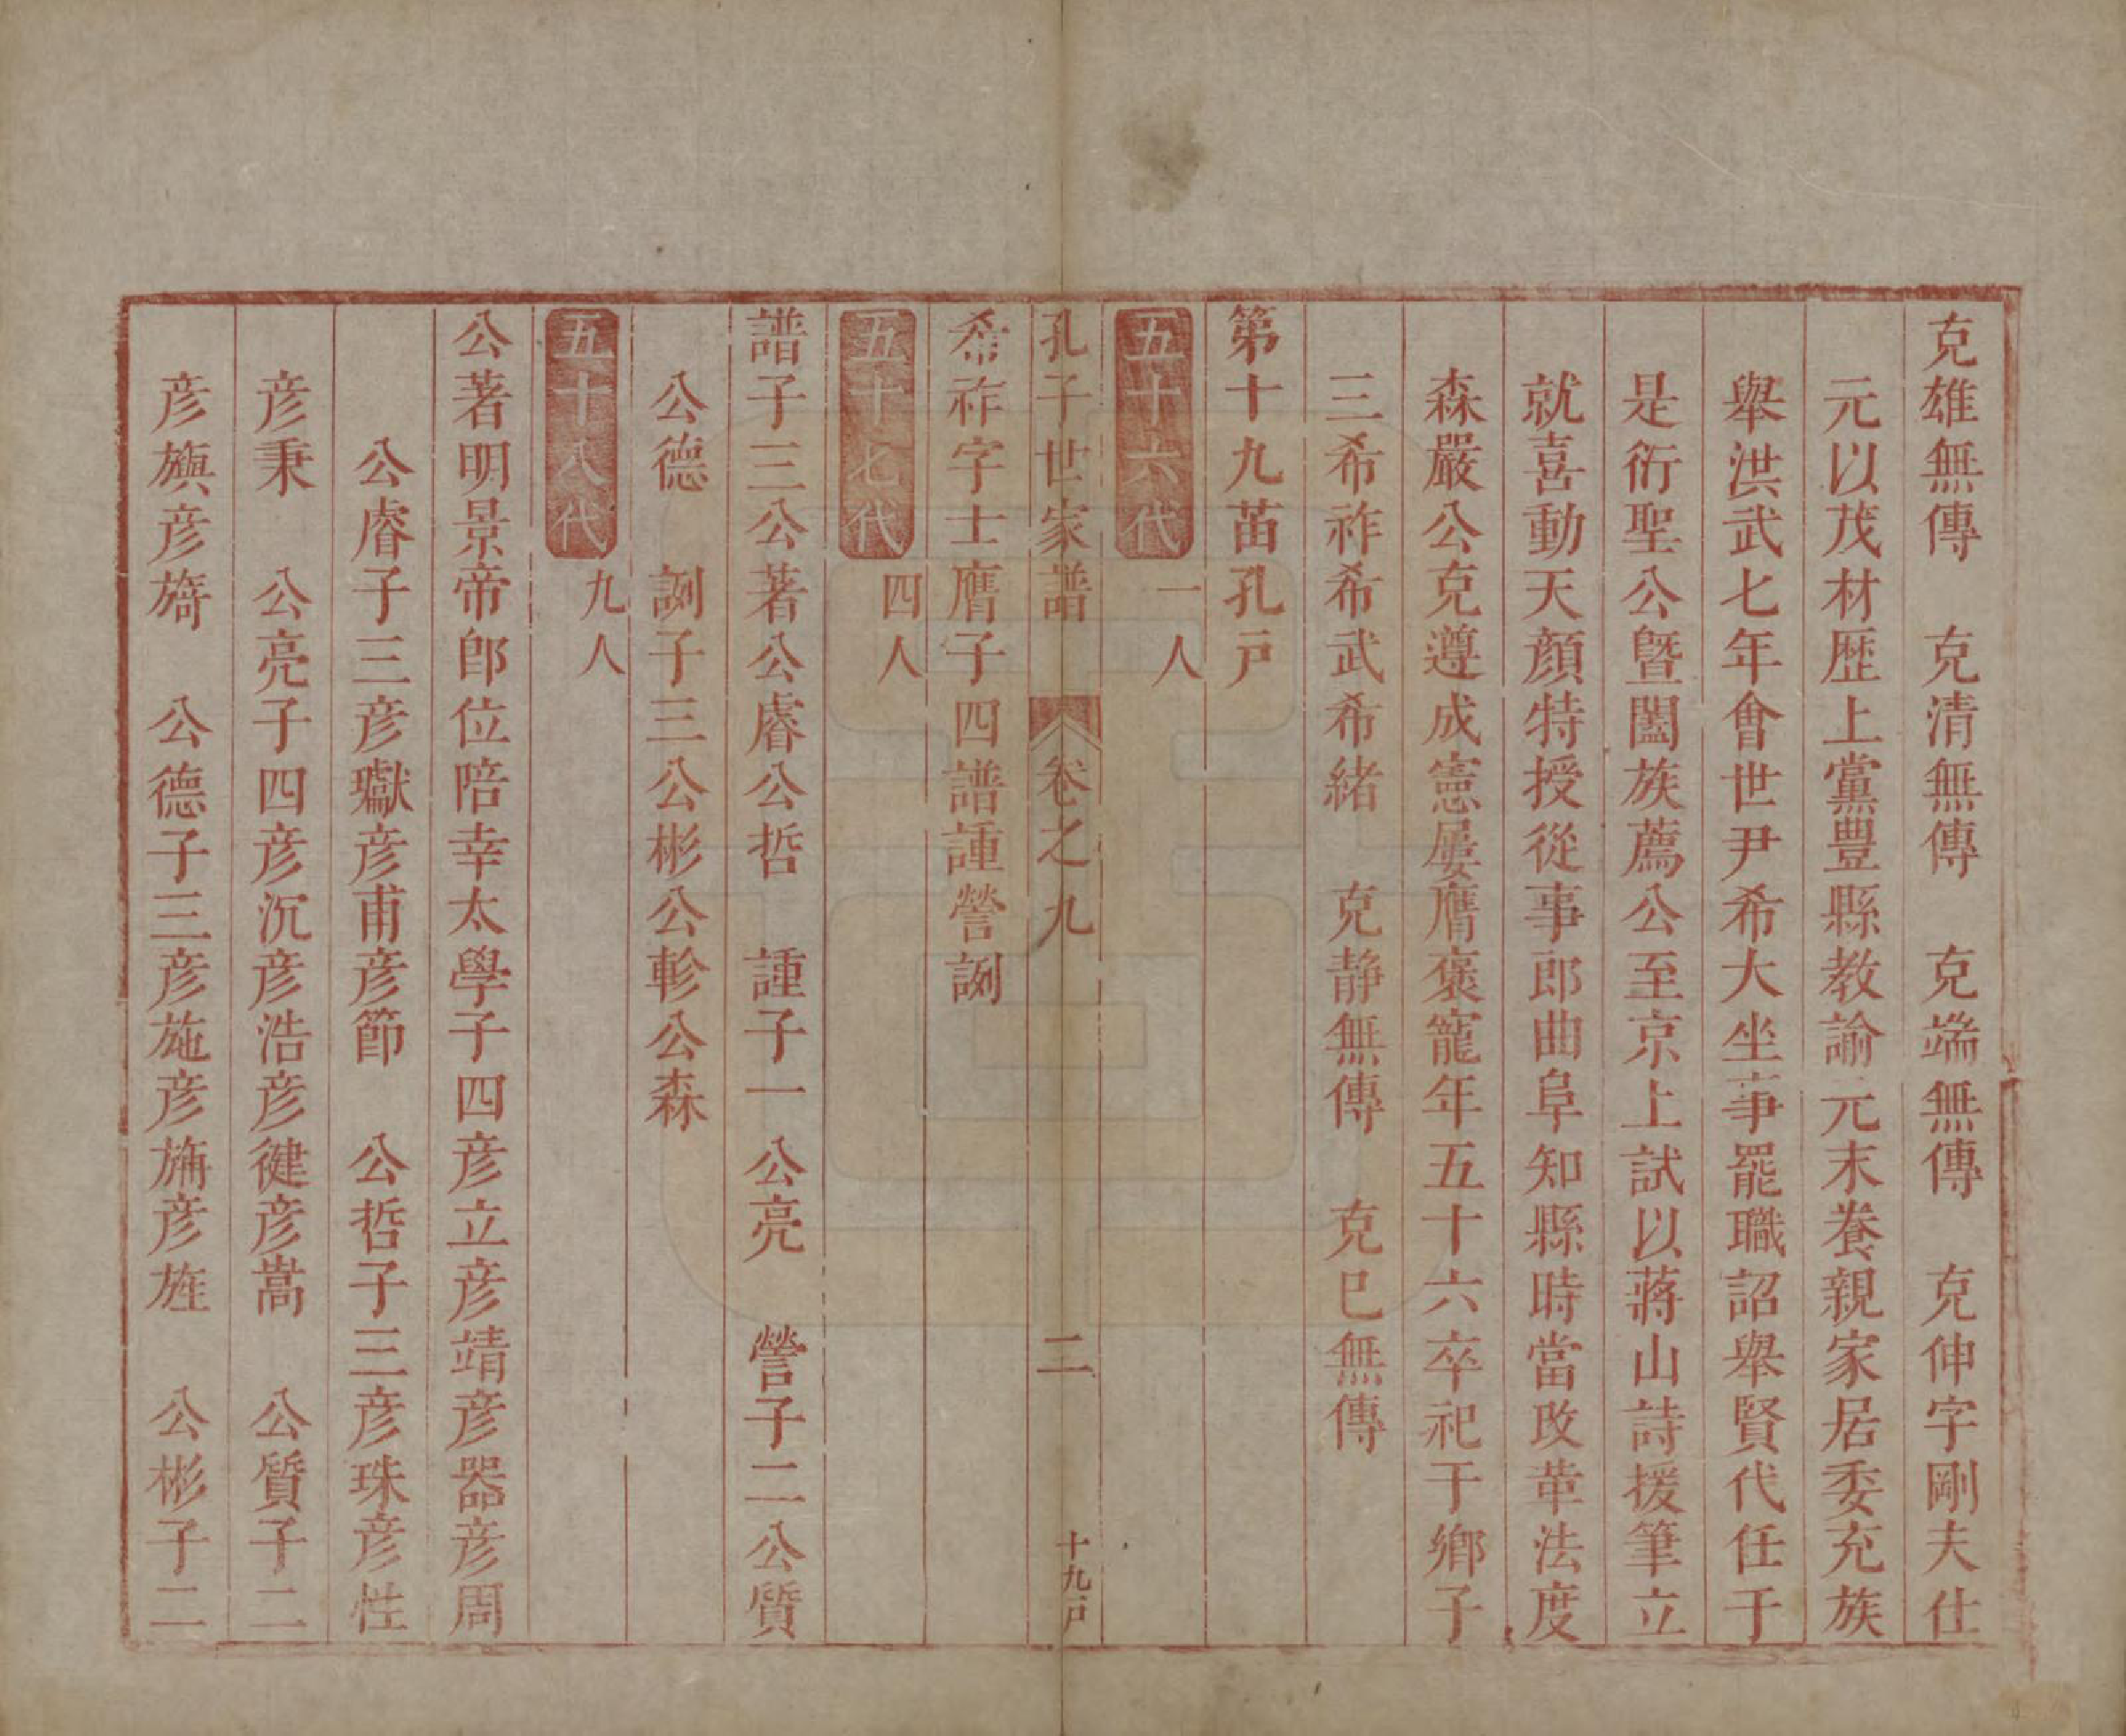 克雄無傳　克清無傳　克端無傳　克伸字剛夫仕
元以茂材歷上黨豐縣教諭元末養親家居委充族
舉洪武七年會世尹希大坐事罷職詔舉賢代任于
是衍聖公曁闔族薦公至京上試以蔣山詩援筆立
就喜動天顏特授從事郎曲阜知縣時當改革法度
森嚴公克遵成憲屢膺褒寵年五十六卒祀于鄉子
三希祚希武希緒　克静無傳　克巳無傳
第十九苗孔戸
五十六代　一人
孔子世家譜　卷之九　二　十九戸
希祚字士膺子四譜諥謍詶
五十七代　四人
譜子三公著公睿公哲　諥子一公亮　謍子二公質
公德　詶子三公彬公軫公森
五十八代　九人
公著明景帝卽位陪幸太學子四彥立彥靖彥器彥周
公睿子三彥瓛彥甫彥節　公哲子三彥珠彥性
彥秉　公亮子四彥沉彥浩彥徤彥嵩　公質子二
彥旟彥旖　公德子三彥施彥旃彥旌　公彬子二